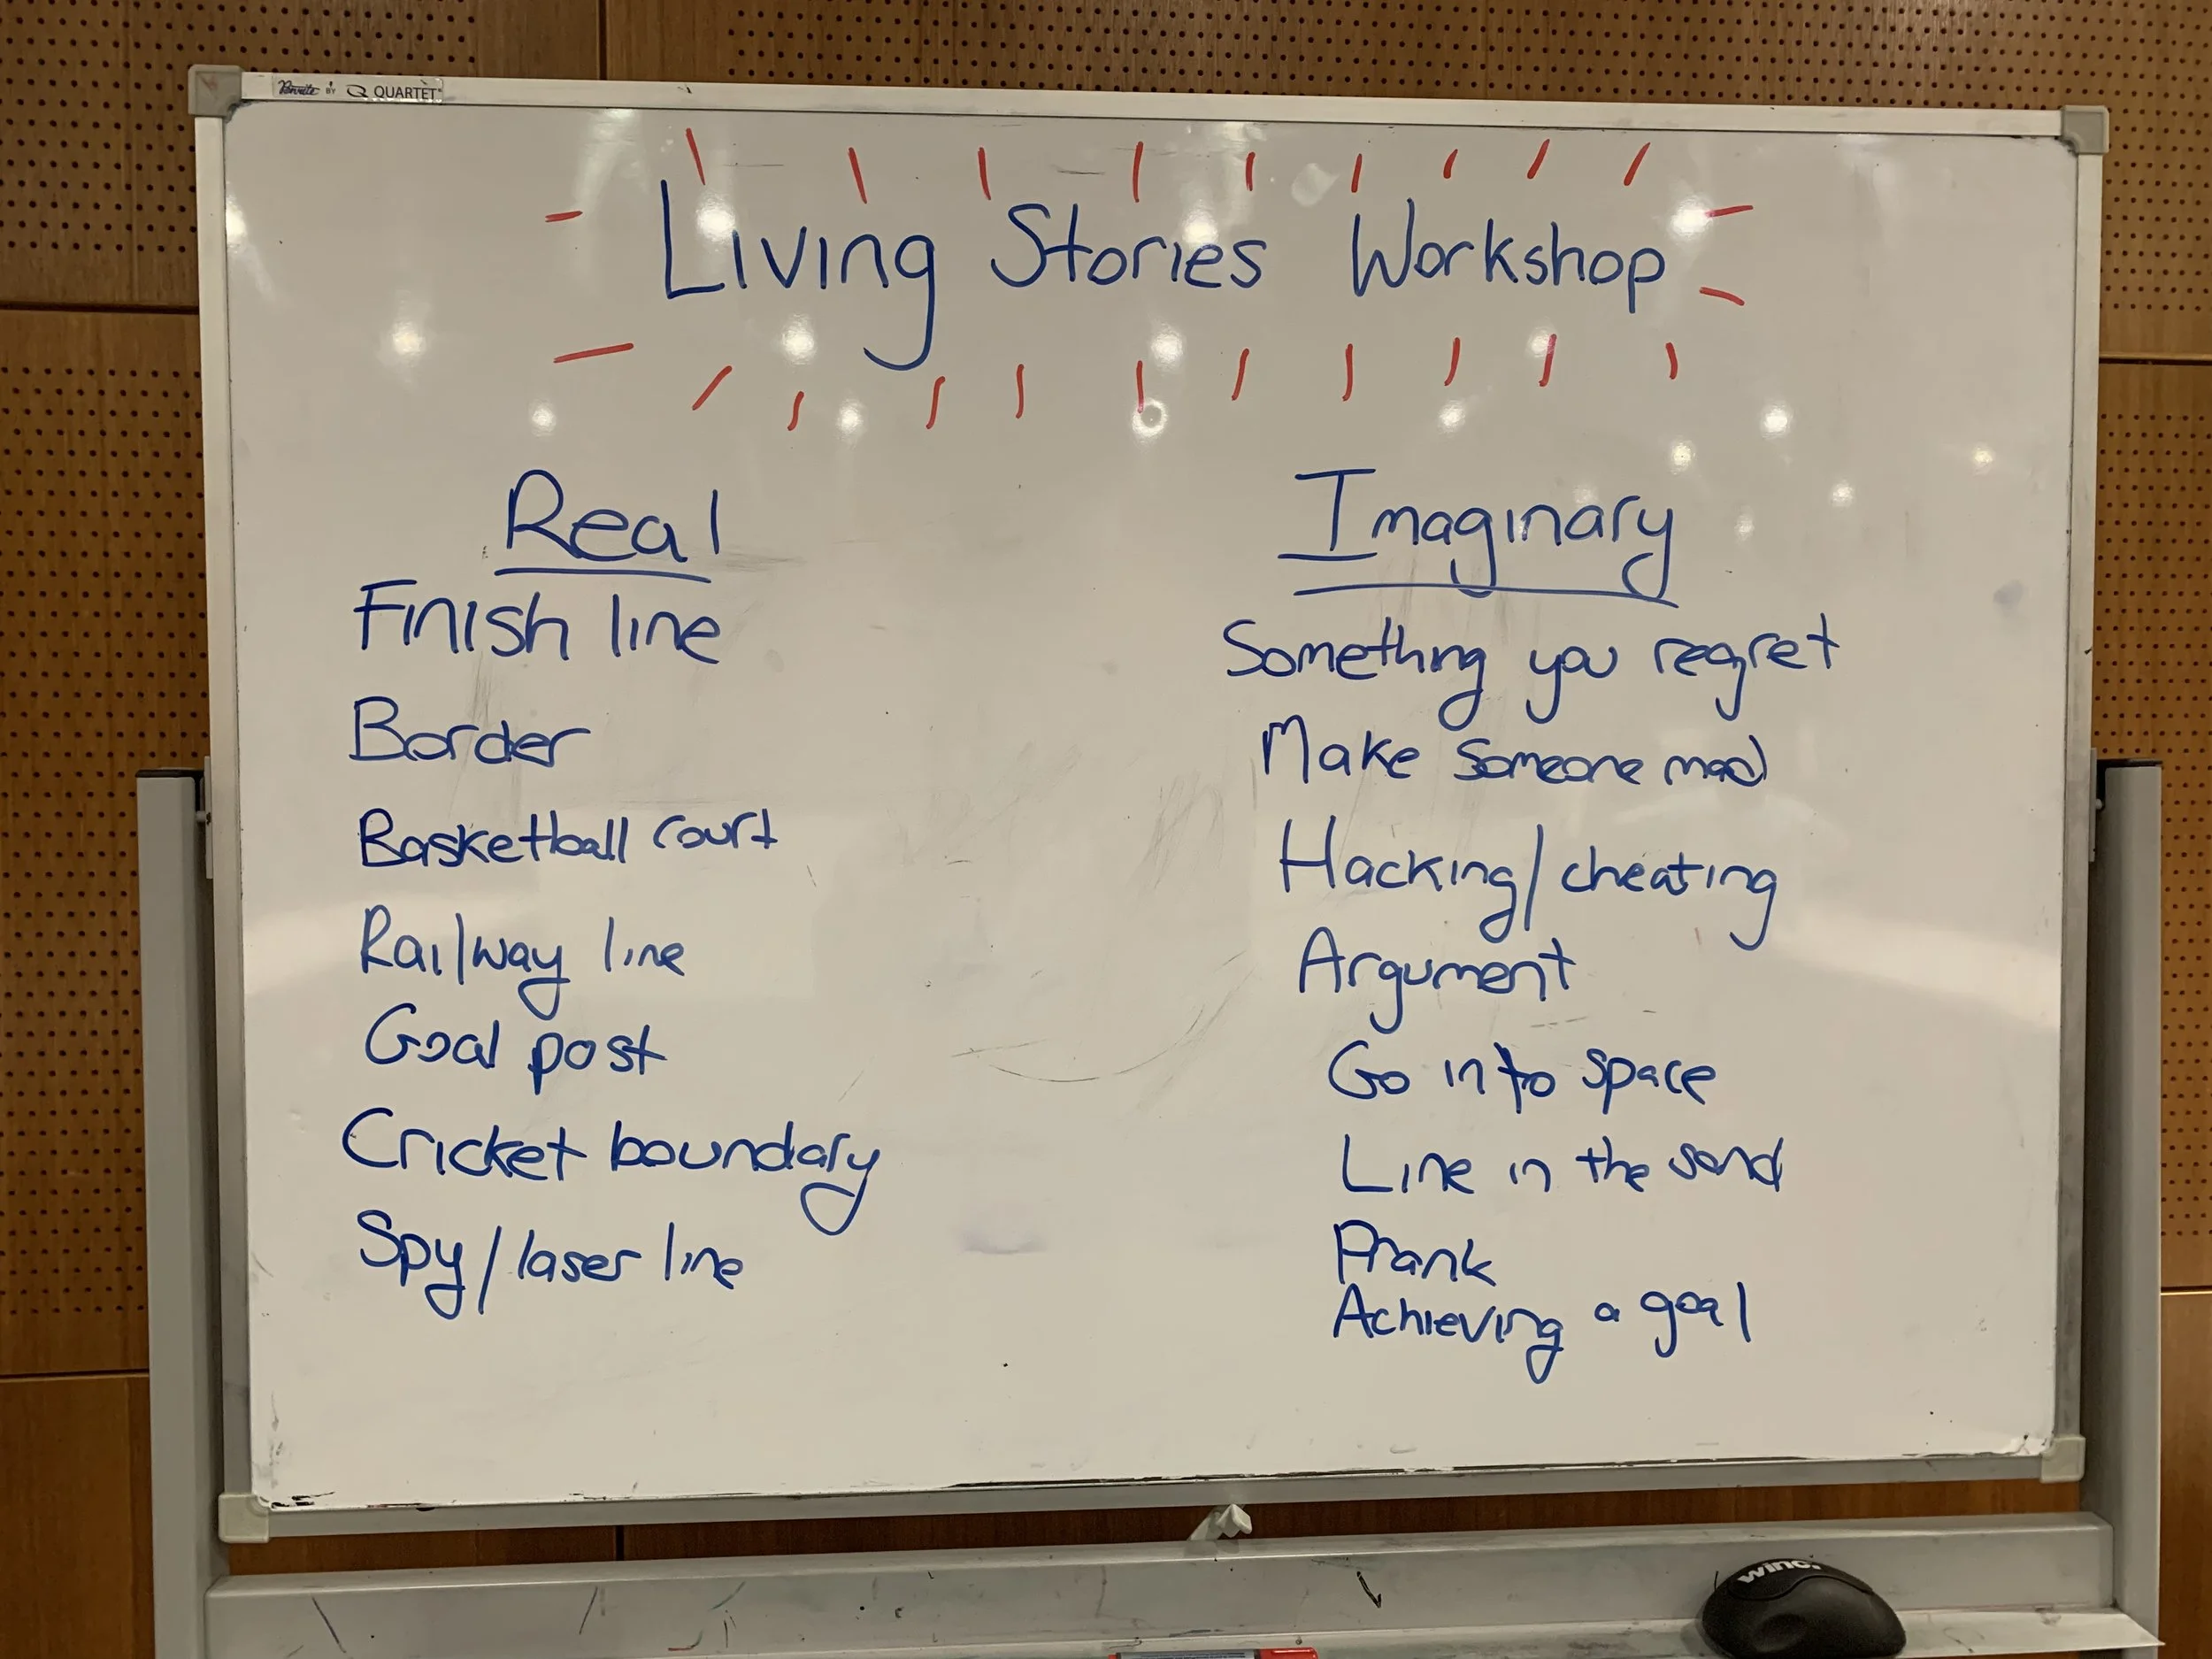 Penrite BY QUARTET
Living Stories Workshop
Real
Finish line
Border
Basketball court
Railway line
Goal post
Cricket boundary
Spy/laser line
Imaginary
Something you regret
Make someone mad
Hacking/cheating
Argument
Go into space
Line in the sand
Prank
Achieving a goal
winc.